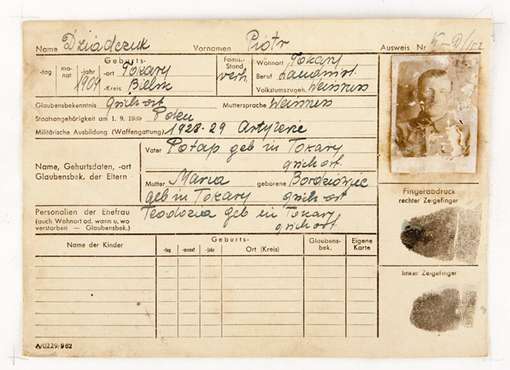 Name Dziadczuk Vornamen Piotr Ausweis Nr
Geburts- Famil.- Stand verh. Wohnort Tokary
-tag mo- nat jahr 1904 -ort Tokary Beruf Landwirt
-Kreis Bielsk Volkstumszugeh. Weissruss
Glaubensbekenntnis griech ort Muttersprache Weissruss
Staatsangehörigkeit am 1. 9. 1939 Polen
Militärische Ausbildung (Waffengattung) 1928-29 Artylerie
Name, Geburtsdaten, -ort Glaubensbek. der Eltern
Vater Potap geb in Tokary
griech ort.
Mutter Maria geborene
geb in Tokary griech ort
Personalien der Ehefrau Teodozia geb in Tokary
(auch Wohnort od. wann u. wo verstorben — Glaubensbek.) griech ort
Fingerabdruck
rechter Zeigefinger
linker Zeigefinger
Name der Kinder Geburts- Glaubens- bek. Eigene Karte
-tag -monat -jahr Ort (Kreis)
A/0229-9 62